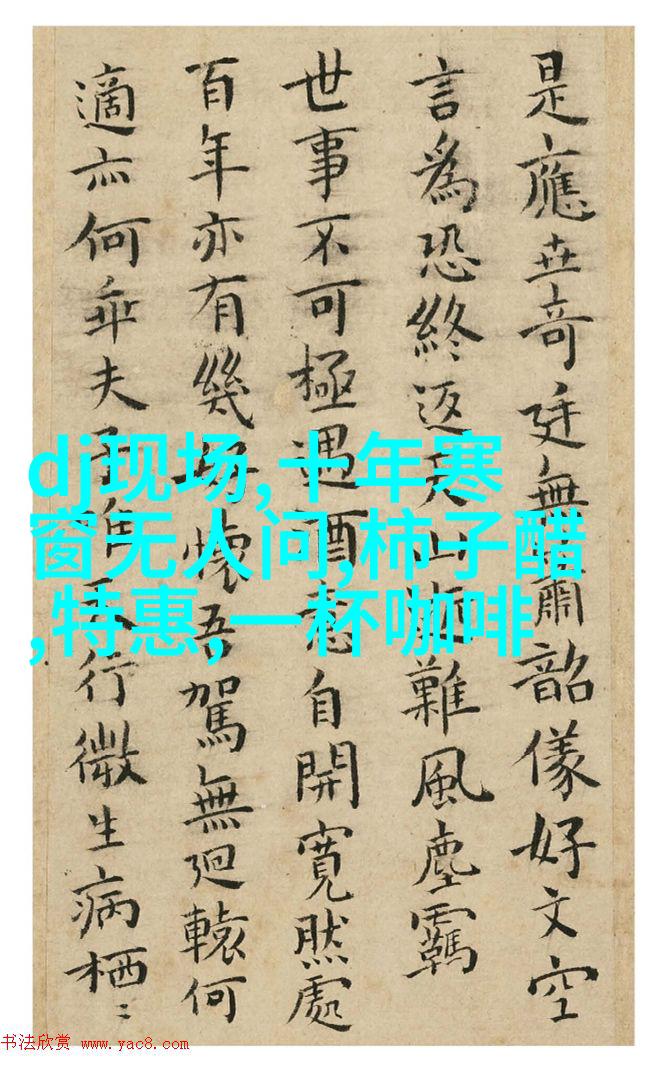 是應世奇廷無韶儀好文空
言為恐終返山難風塵羈
世事不可極遇酒意自開寬然處
百年亦有幾好懷吾駕無迴轅何
適亦何乖夫子行微生病栖〻
dj现场,十年寒
窗无人问,柿子醋
,特惠,一杯咖啡
书法欣赏 www.yac8.com